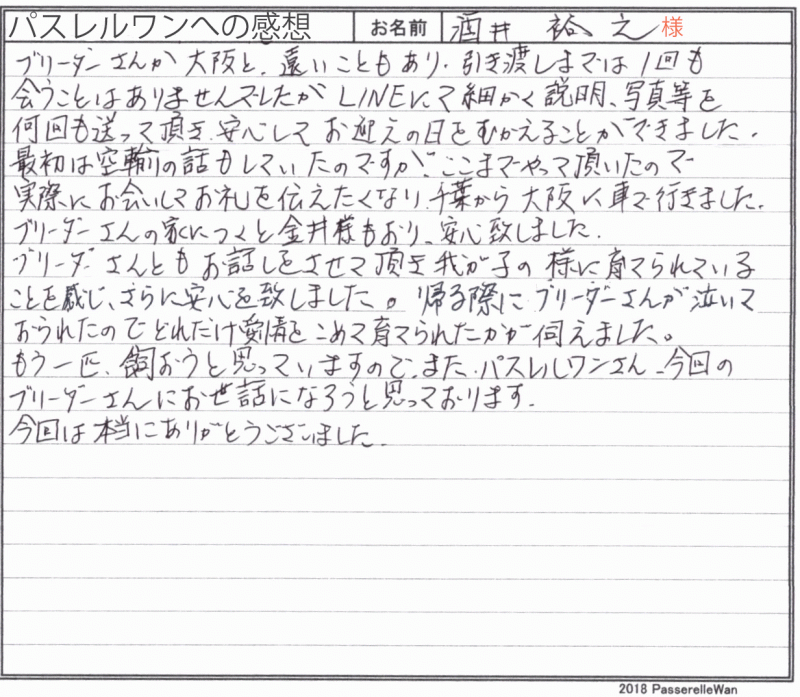 パスレルワンへの感想 お名前 酒井 裕之 様
ブリーダーさんが大阪と、遠いこともあり、引き渡しまでは1回も
会うことはありませんでしたがLINEにて細かく説明、写真等を
何回も送って頂き、安心してお迎えの日をむかえることができました。
最初は空輸の話もしていたのですが、ここまでやって頂いたので
実際にお会いしてお礼を伝えたくなり、千葉から大阪に車で行きました。
ブリーダーさんの家につくと金井様もおり、安心致しました。
ブリーダーさんともお話しをさせて頂き我が子の様に育てられている
ことを感じ、さらに安心を致しました。帰る際にブリーダーさんが泣いて
おられたのでどれだけ愛情をこめて育てられたかが伺えました。
もう一匹、飼おうと思っていますので、また、パスレルワンさん、今回の
ブリーダーさんにお世話になろうと思っております。
今回は本当にありがとうございました。
2018 PasserelleWan